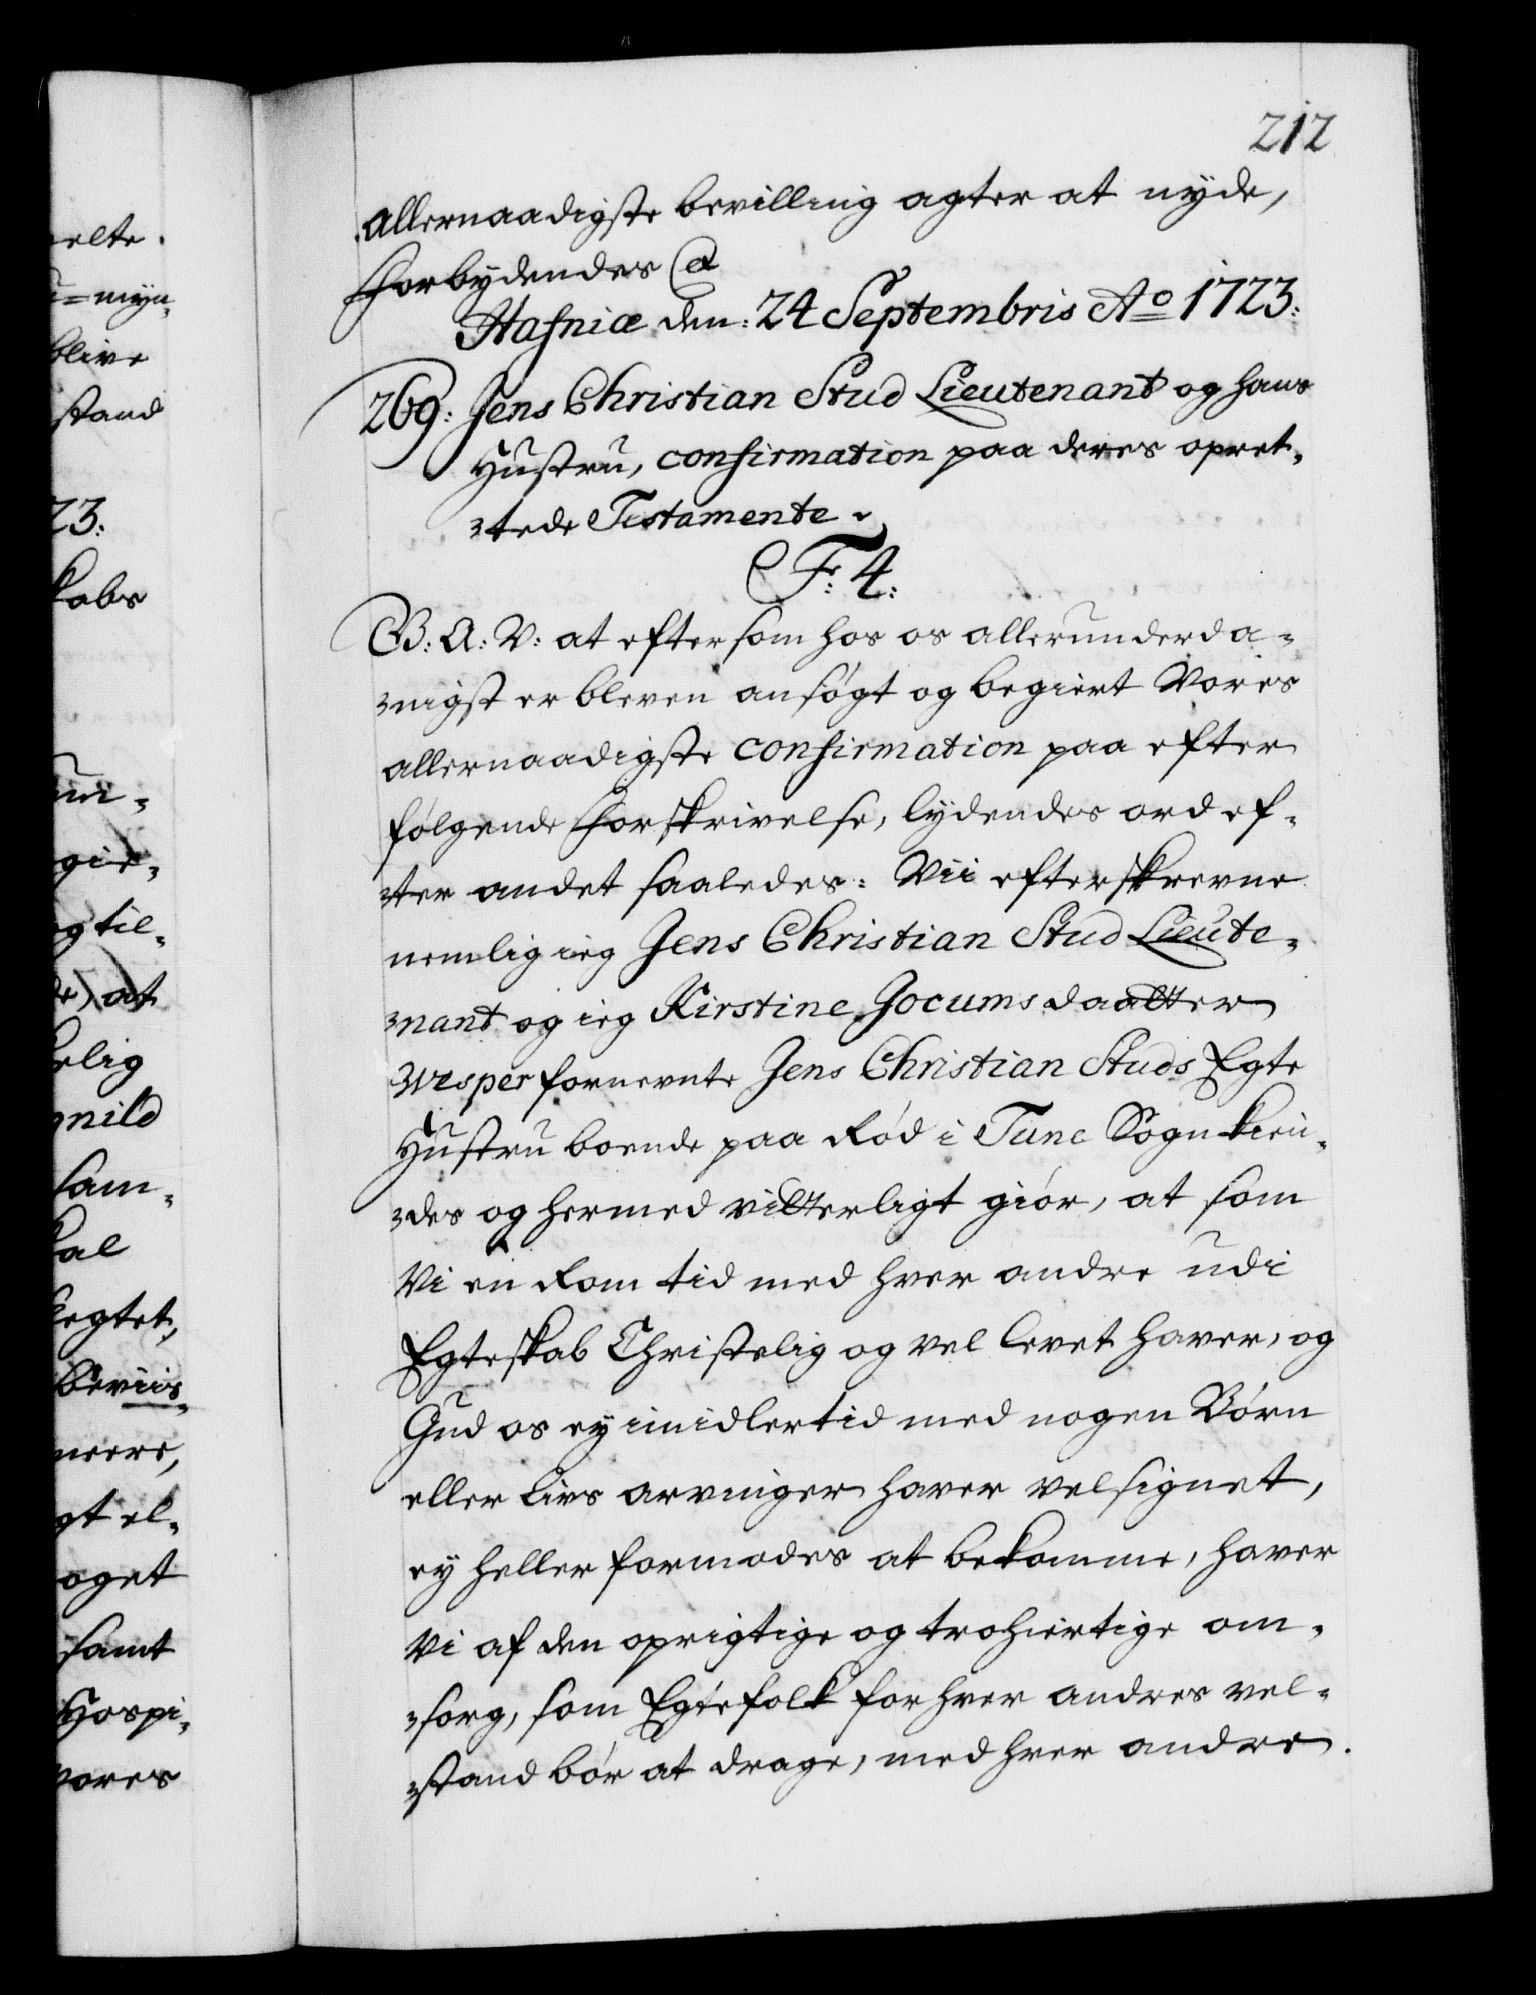 212
allernaadigste bevilling agter at nyde,
forbydendes &c
Hafniæ den: 24 Septembris Ao 1723:
269: Jens Christian Stud Lieutenant og hans
Hustru, confirmation paa deres opret-
tede Testamente.
F: 4:
G: A: V: at eftersom hos os allerunderda-
nigst er bleven ansøgt og begiert Vores
allernaadigste confirmation paa efter
følgende forskrivelse, lydendes ord ef-
ter andet saaledes: Vii efterskrevne
nemlig ieg Jens Christian Stud Lieute-
nant og ieg Kirstine Jocums daatter
Wesper fornevnte Jens Christian Studs Egte
Hustru boende paa Rød i Tune Sogn kien-
des og hermed vitterligt giør, at som
Vi en Rom tid med hver andre udi
Egteskab Christelig og vel levet haver, og
Gud os ey imidlertid med nogen Børn
eller Livs arvinger haver velsignet,
ey heller formodes at bekomme, haver
Vi af den oprigtige og trohiertige om-
sorg, som Egtefolk for hver andres vel-
stand bør at drage, med hver andre
elte.
myn-
blive
stand
23:
skabs
gie-
og til-
at
elig
mild
sam-
kal
egtet,
beviis-
meere,
gt el-
oget
samt
Hospi-
vores